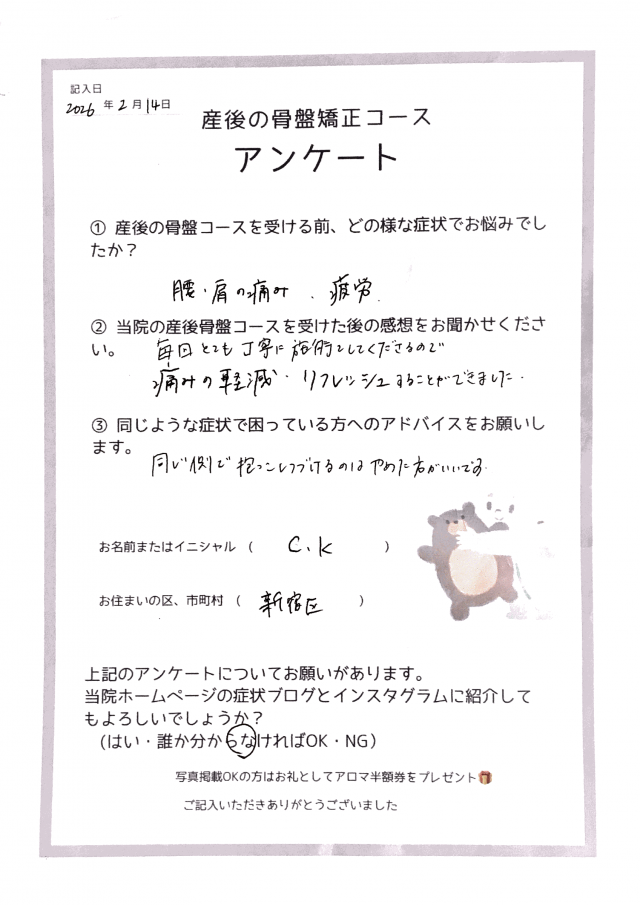 記入日
2026 年 2 月 14 日
産後の骨盤矯正コース
アンケート
① 産後の骨盤コースを受ける前、どの様な症状でお悩みでし
たか？
腰・肩の痛み 、疲労
② 当院の産後骨盤コースを受けた後の感想をお聞かせくださ
い。 毎回とても丁寧に施術をしてくださるので
痛みの軽減・リフレッシュすることができました.
③ 同じような症状で困っている方へのアドバイスをお願いし
ます。
同じ側で抱っこしつづけるのはやめた方がいいです
お名前またはイニシャル （ C.K ）
お住まいの区、市町村 （ 新宿区 ）
上記のアンケートについてお願いがあります。
当院ホームページの症状ブログとインスタグラムに紹介して
もよろしいでしょうか？
（はい・誰か分からなければOK・NG）
写真掲載OKの方はお礼としてアロマ半額券をプレゼント🎁
ご記入いただきありがとうございました